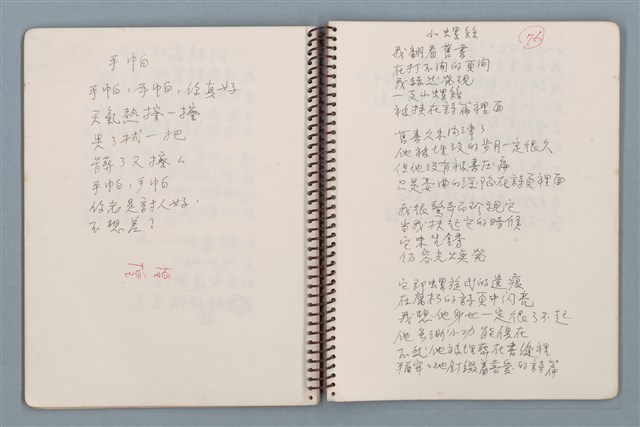 手帕
手帕,手帕,你真好
天氣熱擦一擦
累了拭一把
髒了又擦
手帕,手帕
你老是討人好,
不想差?
小螺絲
76
我翻看舊書
在打不開的頁間
我赫然發現
一支小螺絲
被扶在詩篇裡面
舊書久未閱讀了
他被埋没的歲月一定很久
但他没有被書压痛
只是委曲的深陷在詩頁裡面
我很驚奇而珍視它
當我扶起它的時候
它未生銹
仍容光煥發
它那螺旋式的遺痕
在腐朽的詩頁中闪亮
我想他身世一定很了不起
他
不然他被埋葬在書縫裡
他釘綴着喜爱的詩篇